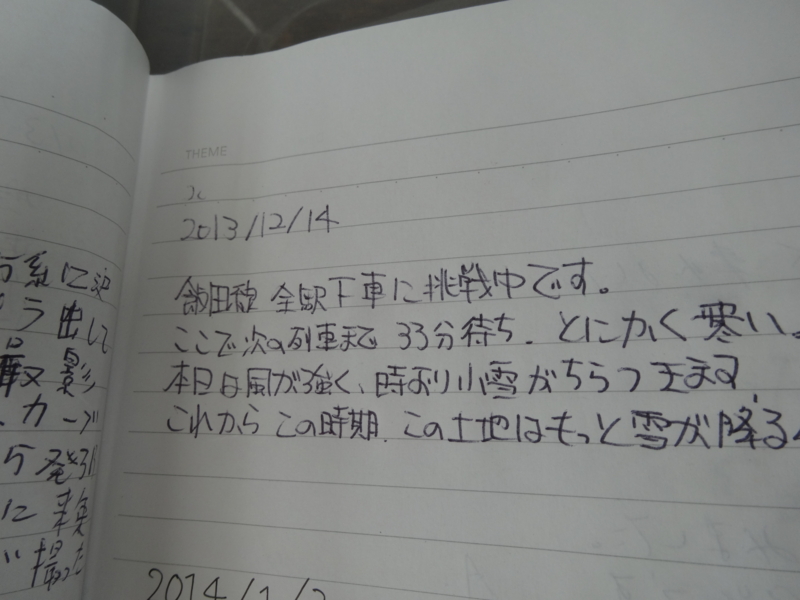 THEME
2013/12/14
飯田線 全駅下車に挑戦中です。
ここで次の列車まで 33分待ち. とにかく寒い。
本日は風が強く、時より小雪がちらつきます
これから この時期. この土地はもっと雪が降る
2014/1/2
系に
ラ出して
取影
カーブ
ら発
に
撮った